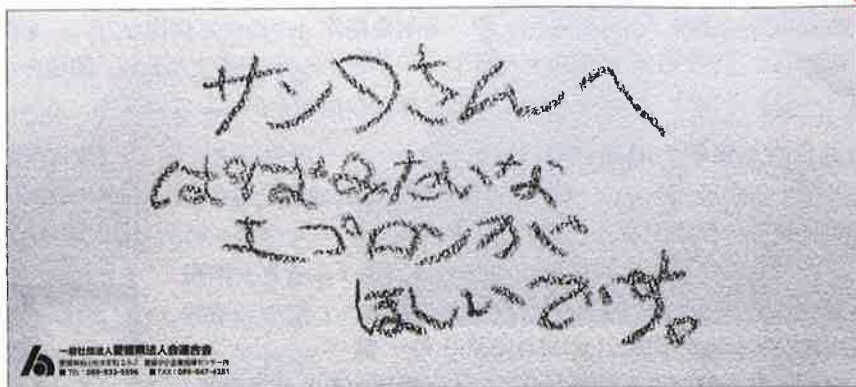 サンタさんへ
ぱぱみたいな
エプロンが
ほしいです。
一般社団法人愛媛県法人会連合会
■ TEL：089-933-5596 ■ FAX：089-947-4281